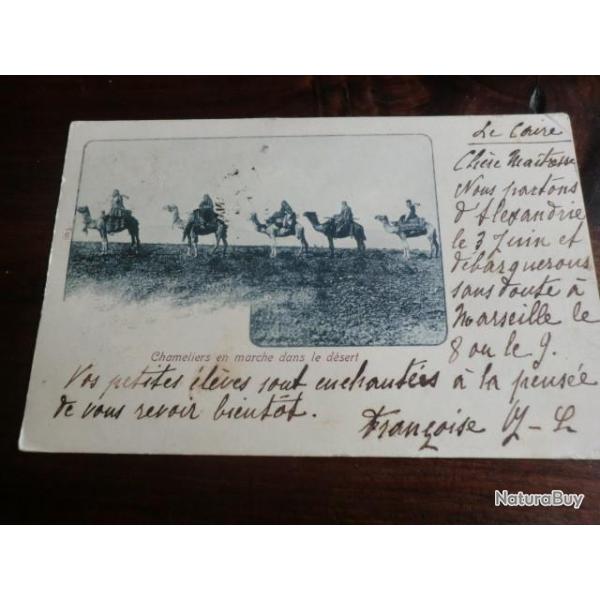 Le Caire
Chère Maîtresse
Nous partons
d'Alexandrie
le 3 Juin et
débarquerons
sans doute à
Marseille le
8 ou le 9.
Chameliers en marche dans le désert
Vos petites élèves sont enchantées à la pensée
de vous revoir bientôt.
Françoise
NaturaBuy